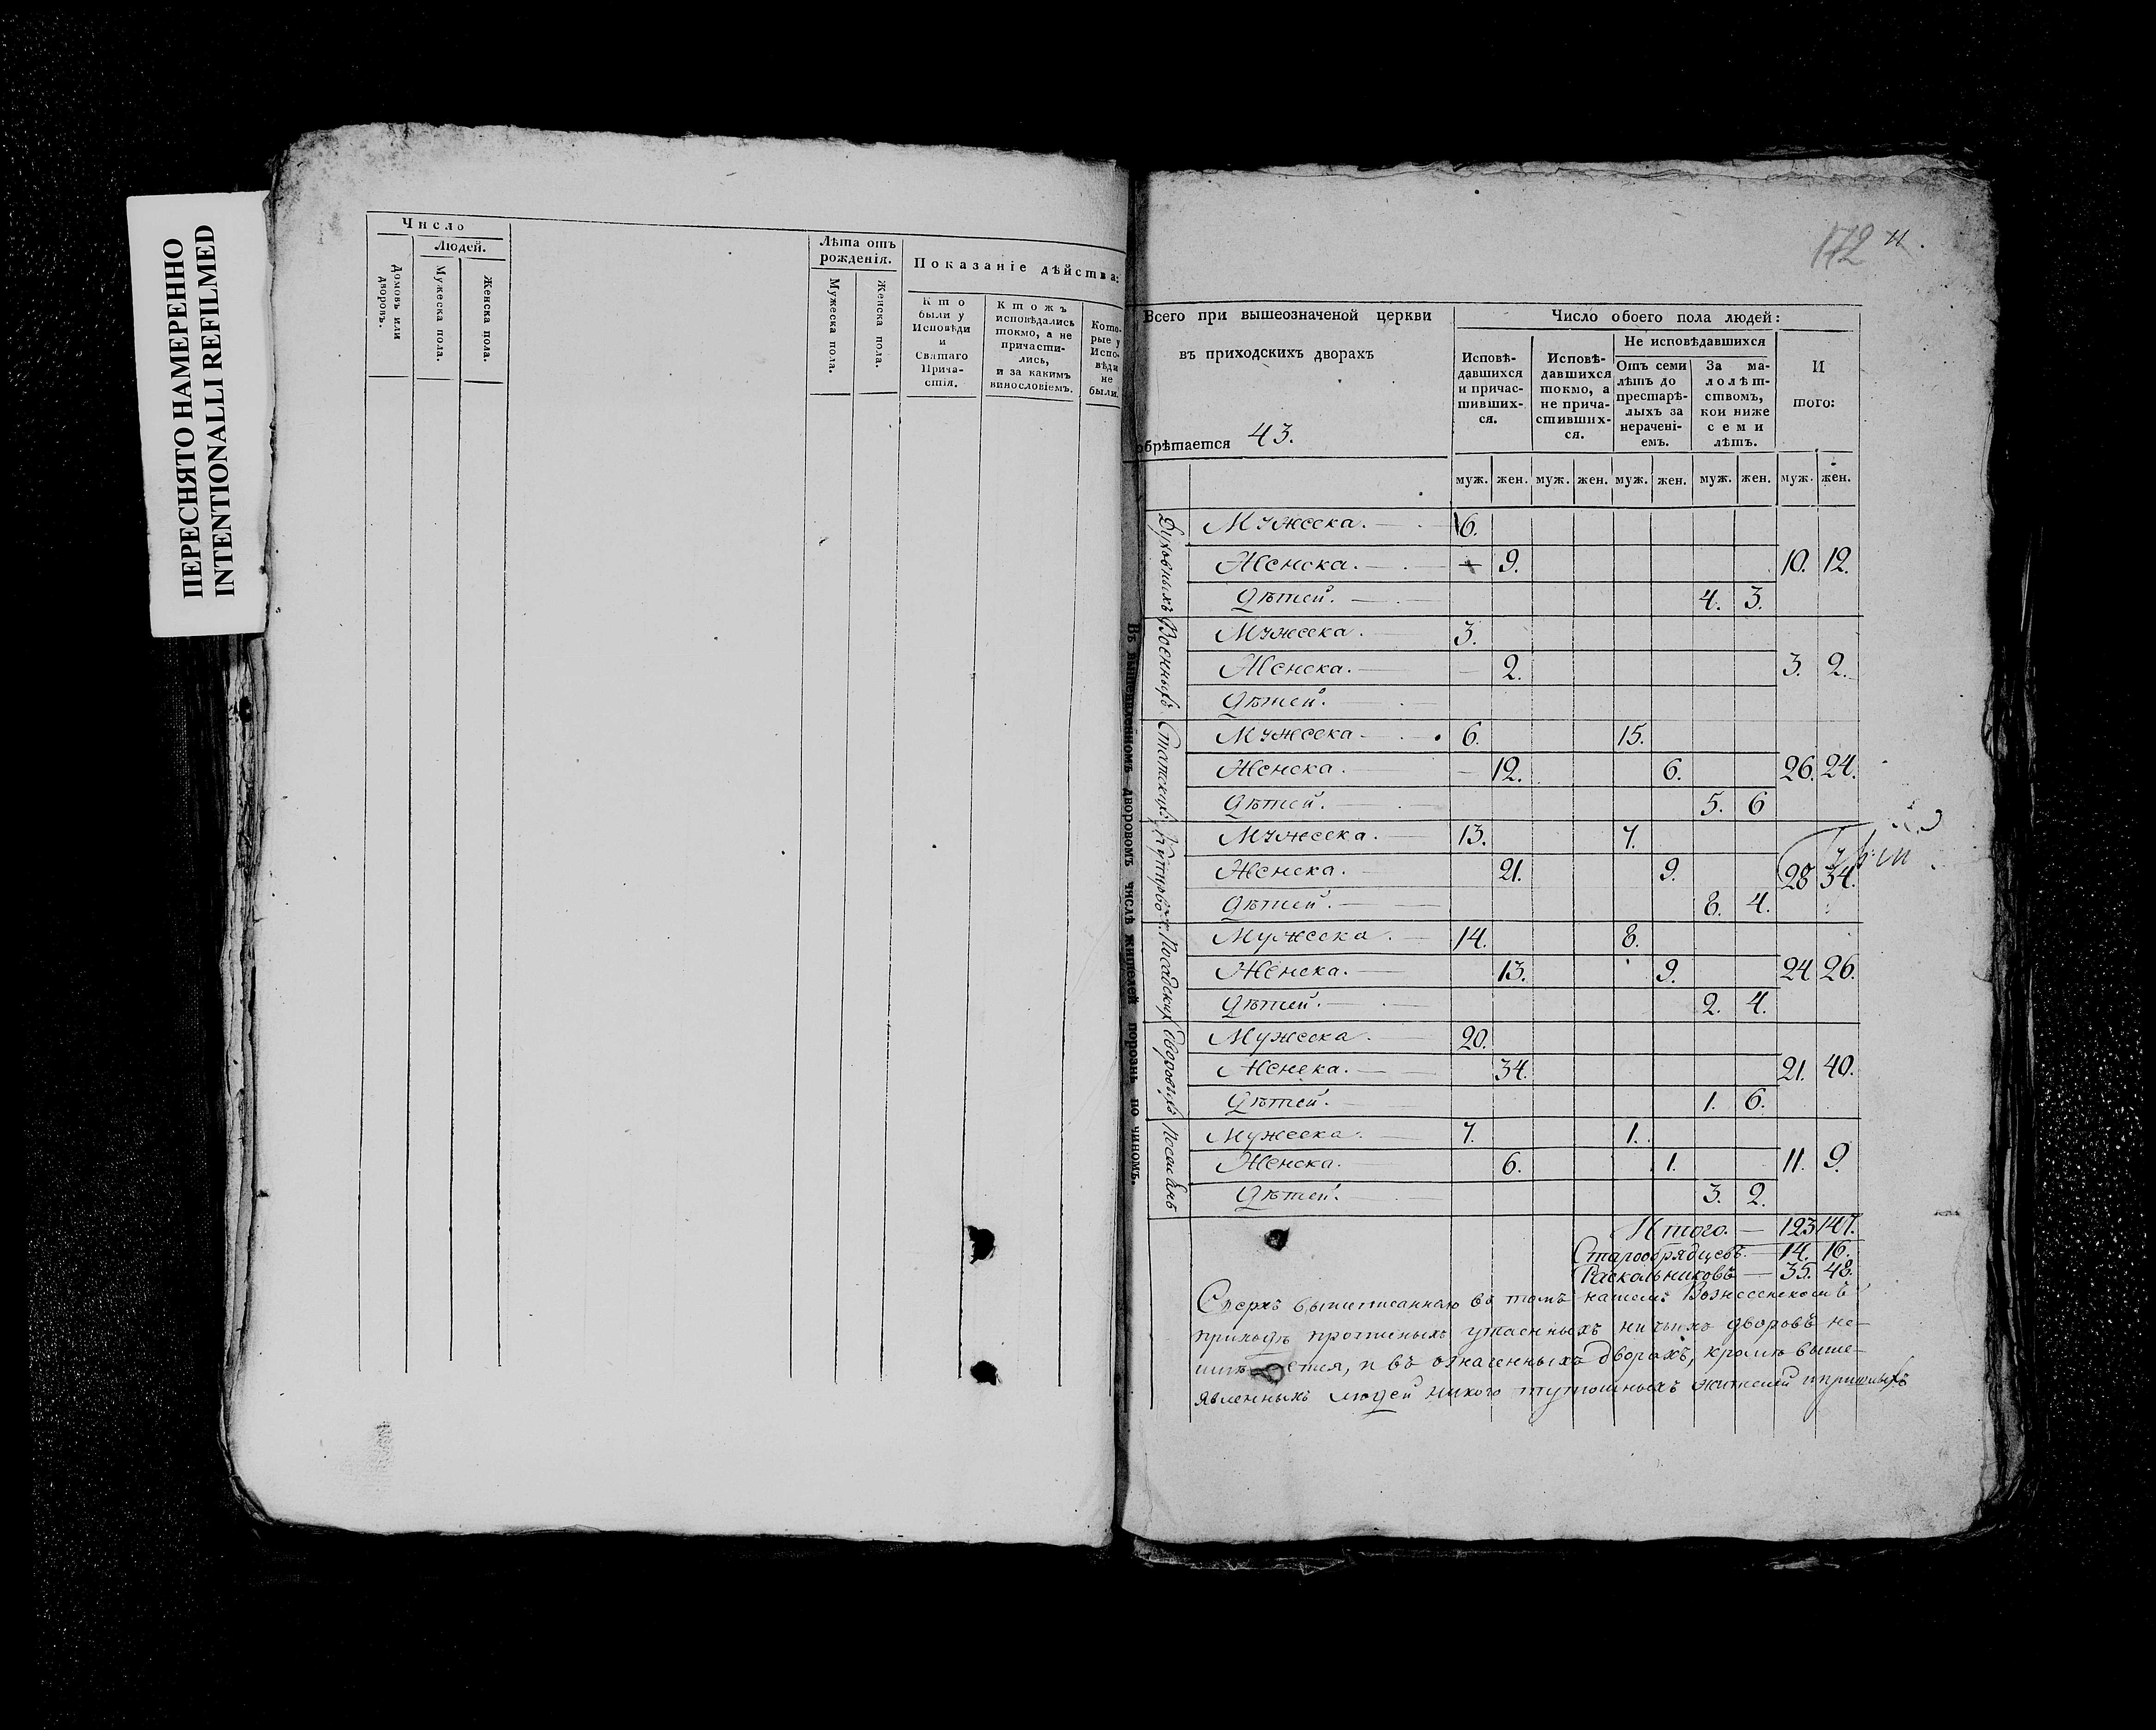 ПЕРЕСНЯТО НАМЕРЕННО
INTENTIONALLI REFILMED
Число
Людей.
Домовъ или дворовъ.
Мужеска пола.
Женска пола.
Лѣта отъ рожденія.
Мужеска пола.
Женска пола.
Показаніе дѣйства:
Кто были у Исповѣди и Святаго Причастія.
Ктожъ исповѣдались токмо, а не причастились, и за какимъ винословіемъ.
Которые у Исповѣди не были.
172
11.
Всего при вышеозначеной церкви
въ приходскихъ дворахъ
обрѣтается 43.
Число обоего пола людей:
Исповѣдавшихся и причастившихся.
Исповѣдавшихся токмо, а не причастившихся.
Не исповѣдавшихся
Отъ семи лѣтъ до престарѣлыхъ за нераченіемъ.
За малолѣтствомъ, кои ниже семи лѣтъ.
И того:
муж. жен. муж. жен. муж. жен. муж. жен. муж. жен.
Въ вышепоказанномъ дворовомъ числѣ жителей порознь по чиномъ.
Духовныхъ
Мужеска. 6.
Женска. 9. 10. 12.
Дѣтей. 4. 3.
Военныхъ
Мужеска. 3.
Женска. 2. 3. 2.
Дѣтей.
Статскихъ
Мужеска 6. 15.
Женска. 12. 6. 26. 24.
Дѣтей. 5. 6
Купцовъ
Мужеска. 13. 7.
Женска. 21. 9. 28 34.
Дѣтей. 8. 4.
Посадских
Мужеска. 14. 8.
Женска. 13. 9. 24 26.
Дѣтей. 2. 4.
Дворовыхъ
Мужеска. 20.
Женска. 34. 21. 40.
Дѣтей. 1. 6.
Мужеска. 7. 1.
Женска. 6. 1. 11. 9.
Дѣтей. 3. 2.
Итого. 123 147.
Старообрядцевъ. 14. 16.
Раскольниковъ 35. 48.
Сверхъ вышеписаннаго въ томъ нашемъ Вознесенскомъ
приходѣ утаенныхъ ничьихъ дворовъ не
и въ означенныхъ дворахъ, кромѣ выше-
явленныхъ людей никого тутошныхъ жителей и пришлыхъ